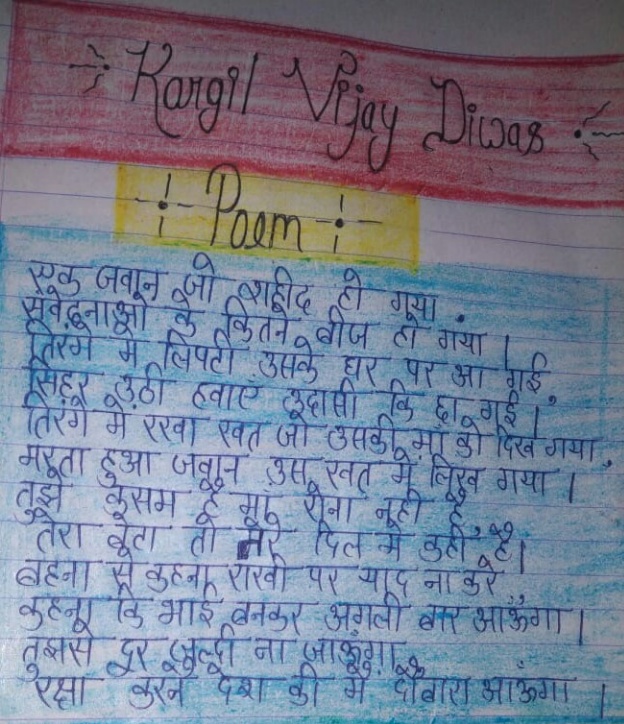 Kargil Vijay Diwas
Poem
एक जवान जो शहीद हो गया,
संवेदनाओं के कितने बीज हो गया |
तिरंगे में लिपटी उसके घर पर आ गई,
सिहर उठी हवाएँ उदासी कि छा गई |
तिरंगे में रखा खत जो उसकी माँ को दिख गया,
मरता हुआ जवान उस खत में लिख गया |
तुझे कसम है माँ रोना नहीं है
तेरा बेटा तो तेरे दिल में कहीं है |
बहना से कहना राखी पर याद ना करे
कहना कि भाई बनकर अगली बार आऊँगा |
तुझसे दूर जल्दी ना जाऊंगा
रक्षा करने देश की मैं दोबारा आऊँगा |